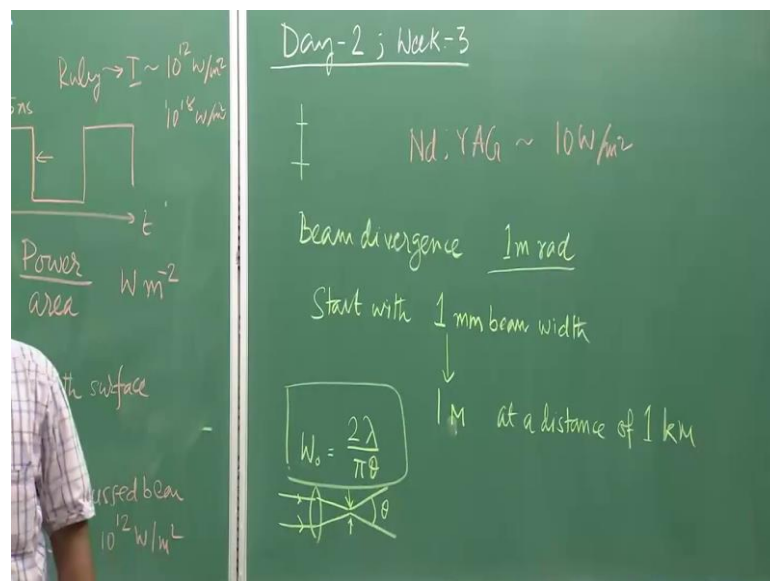 Ruby → I ~ 10¹² W/m²
10¹⁸ W/m²
5ns
t
Power
area
W m⁻²
th surface
ussed beam
10¹² W/m²
Day-2 ; Week-3
Nd:YAG ~ 10W/m²
Beam divergence 1m rad
Start with 1 mm beam width
↓
1M at a distance of 1 km
W₀ = 2λ/πθ
θ